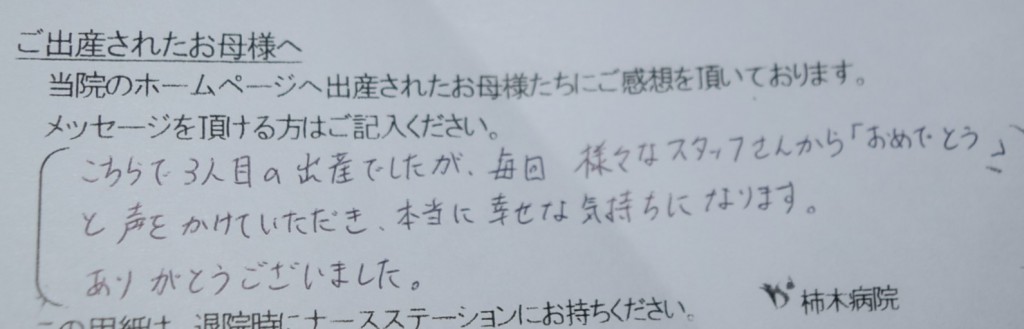 ご出産されたお母様へ
当院のホームページへ出産されたお母様たちにご感想を頂いております。
メッセージを頂ける方はご記入ください。
こちらで3人目の出産でしたが、毎回 様々なスタッフさんから「おめでとう」
と声をかけていただき、本当に幸せな気持ちになります。
ありがとうございました。
この用紙は、退院時にナースステーションにお持ちください。
柿木病院